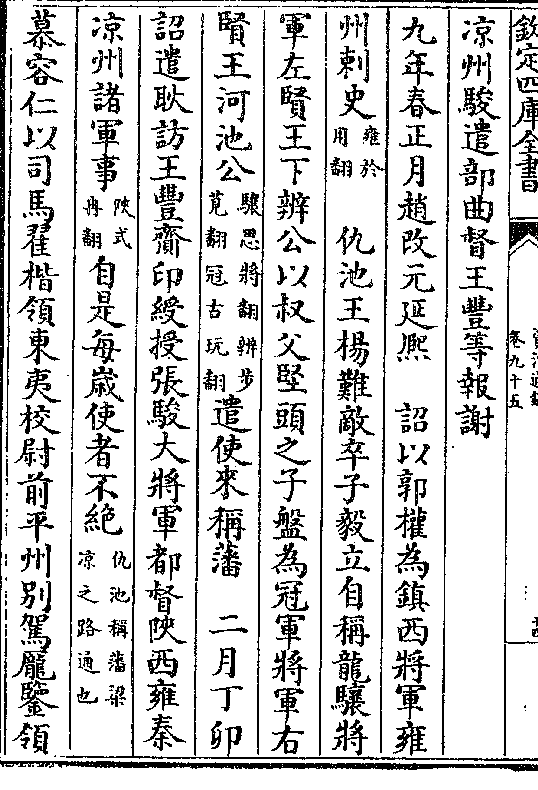 欽定四庫全書
資治通鑑
卷九十五
涼州駿遣部曲督王豐等報謝
九年春正月趙改元延熙　詔以郭權為鎮西將軍雍
州刺史雍於用翻　仇池王楊難敵卒子毅立自稱龍驤將
軍左賢王下辨公以叔父堅頭之子盤為冠軍將軍右
賢王河池公驤思將翻辨步莧翻冠古玩翻遣使來稱藩　二月丁卯
詔遣耿訪王豐齎印綬授張駿大將軍都督陜西雍秦
涼州諸軍事陜式冉翻自是每歲使者不絕仇池稱藩梁涼之路通也
慕容仁以司馬翟楷領東夷校尉前平州別駕龐鑒領